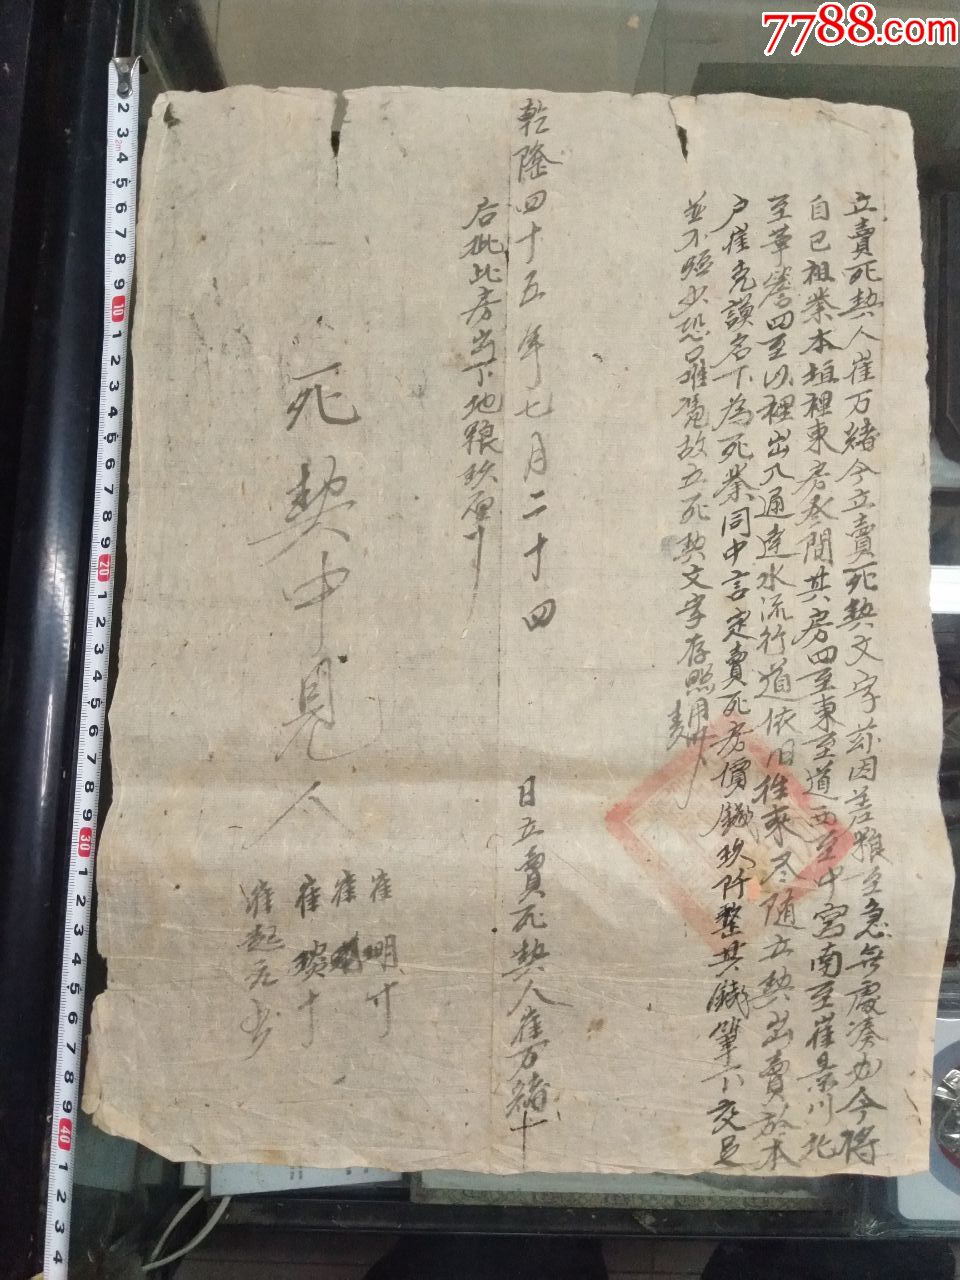 立賣死契人崔万緒今立賣死契文字茲因差粮至急無處凑办今將
自己祖業本垣裡東房叁間其房四至東至道西至中宮南至崔景川北
至革鸾四至以裡出入通逹水流行道依旧徃来尽随立契出賣於本
户崔克謨名下為死業同中言定賣死房價錢玖阡整其錢筆下交足
並不短少恐后难凴故立死契文字存照用
乾隆四十五年七月二十四日立賣死契人崔万緒十
后批此房当下地粮玖厘十
死契中見人
崔明十
崔
崔十
崔起元书
7788.com